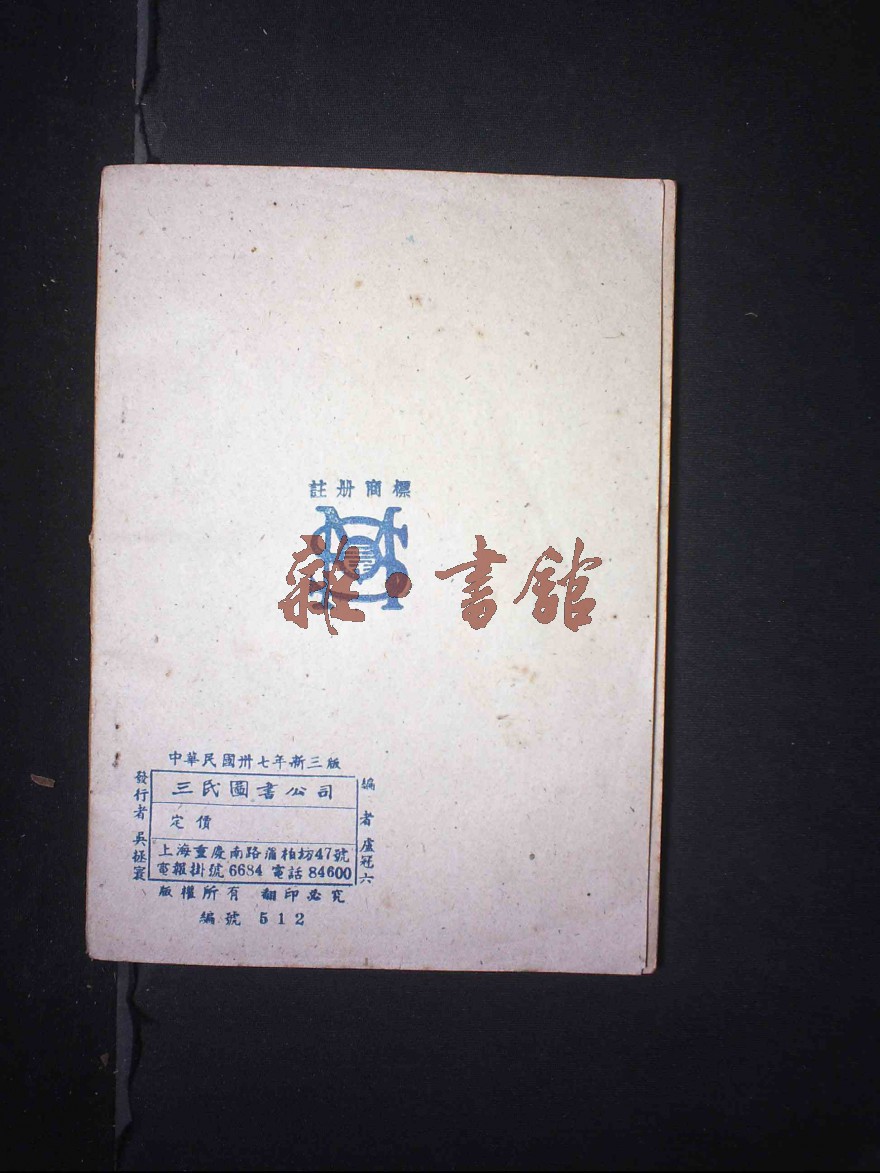 註册商標
雜·書館
中華民國卅七年新三版
編者 盧冠六
三民圖書公司
定價
上海重慶南路蒲柏坊47號
電報掛號 6684 電話 84600
發行者 吳拯寰
版權所有 翻印必究
編號 512